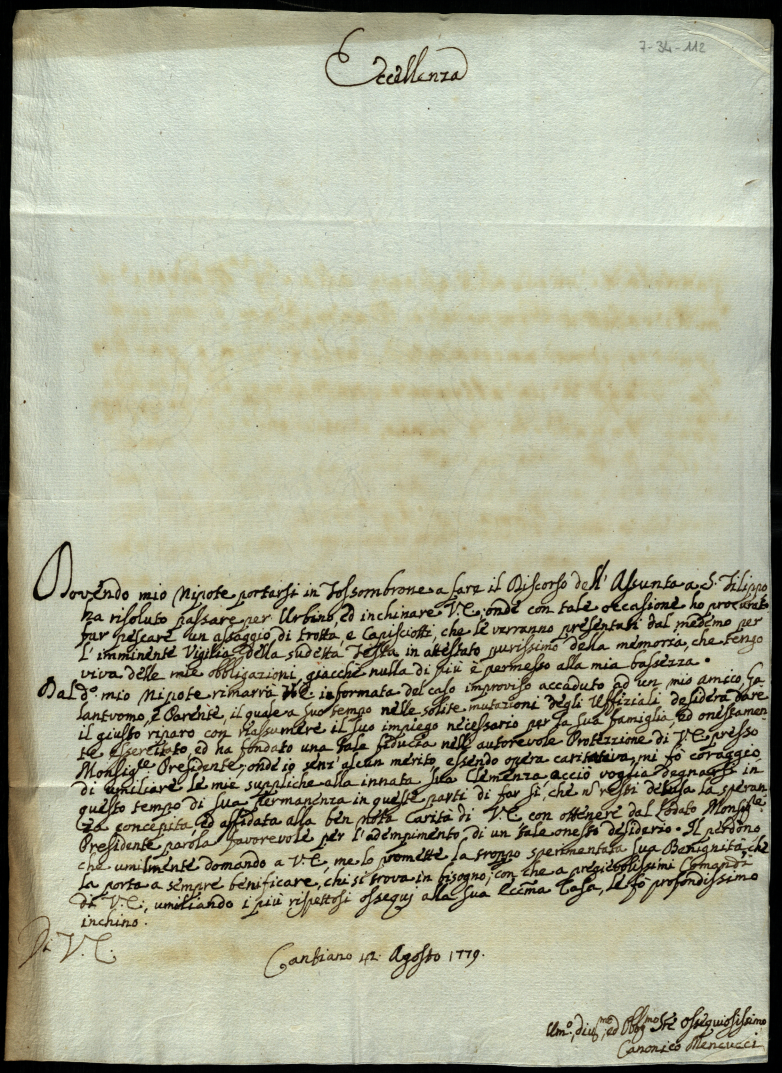 7-34-112
Eccellenza
Dovendo mio Nipote portarsi in Fossombrone a fare il Discorso dell' Assunta a S. Filippo
ha risoluto passare per Urbino, ed inchinare V.E., onde con tale occasione ho procurato
far pescare un assaggio di trotta, e Capisciotti, che le verranno presentati dal medemo per
l'imminente Vigilia della sudetta Festa in attestato purissimo della memoria, che tengo
viva delle mie obbligazioni, giacchè nulla di più è permesso alla mia bassezza.
Dal do. mio Nipote rimarrà V.E. informata del caso improviso accaduto ad un mio amico, Ga-
lantuomo, e Parente, il quale a suo tempo nelle solite mutazioni degli Uffiziali desidera dare
il giusto riparo con riassumere il suo impiego necessario per la sua famiglia, ed onestamen-
te essercitato, ed ha fondato una tale fiducia nell'autorevole Protezzione di V.E. presso
Monsigre. Presidente, onde io senz'alcun merito essendo opera caritativa, mi fò coraggio
di umiliare le mie suppliche alla innata sua Clemenza acciò voglia degnarsi in
questo tempo di sua permanenza in queste parti di far sì, che n. resti delusa la speran-
za concepita, ed affidata alla ben nota Carità di V.E. con ottenere dal lodato Monsigre.
Presidente parola favorevole per l'adempimento di un tale onesto desiderio. Il perdono
che umilmente domando a V.E., me lo promette la troppo sperimentata sua Benignità, che
la porta a sempre benificare, chi si trova in bisogno; con che a pregievolissimi Comandi
di V.E., umiliando i più rispettosi ossequj alla sua Eccma Casa, le fò profondissimo
inchino.
Di V.E.
Cantiano 12. Agosto 1779.
Umo., divmo., ed Obbmo. Sre. Ossequiosissimo
Canonico Mencucci